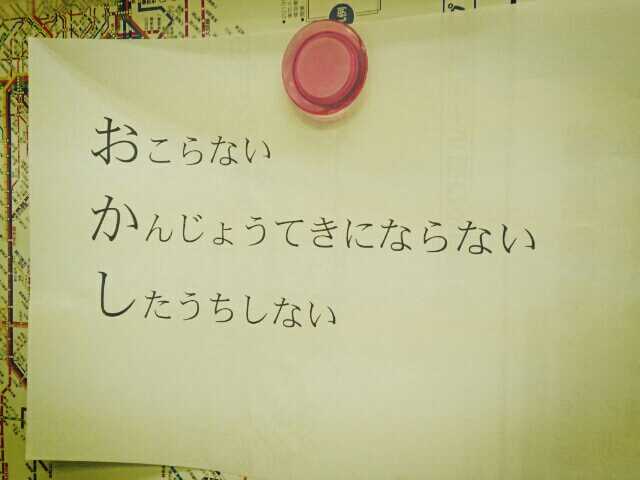 おこらない
かんじょうてきにならない
したうちしない